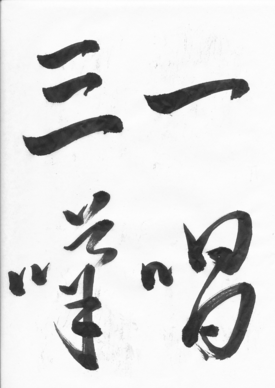 一唱
三嘆